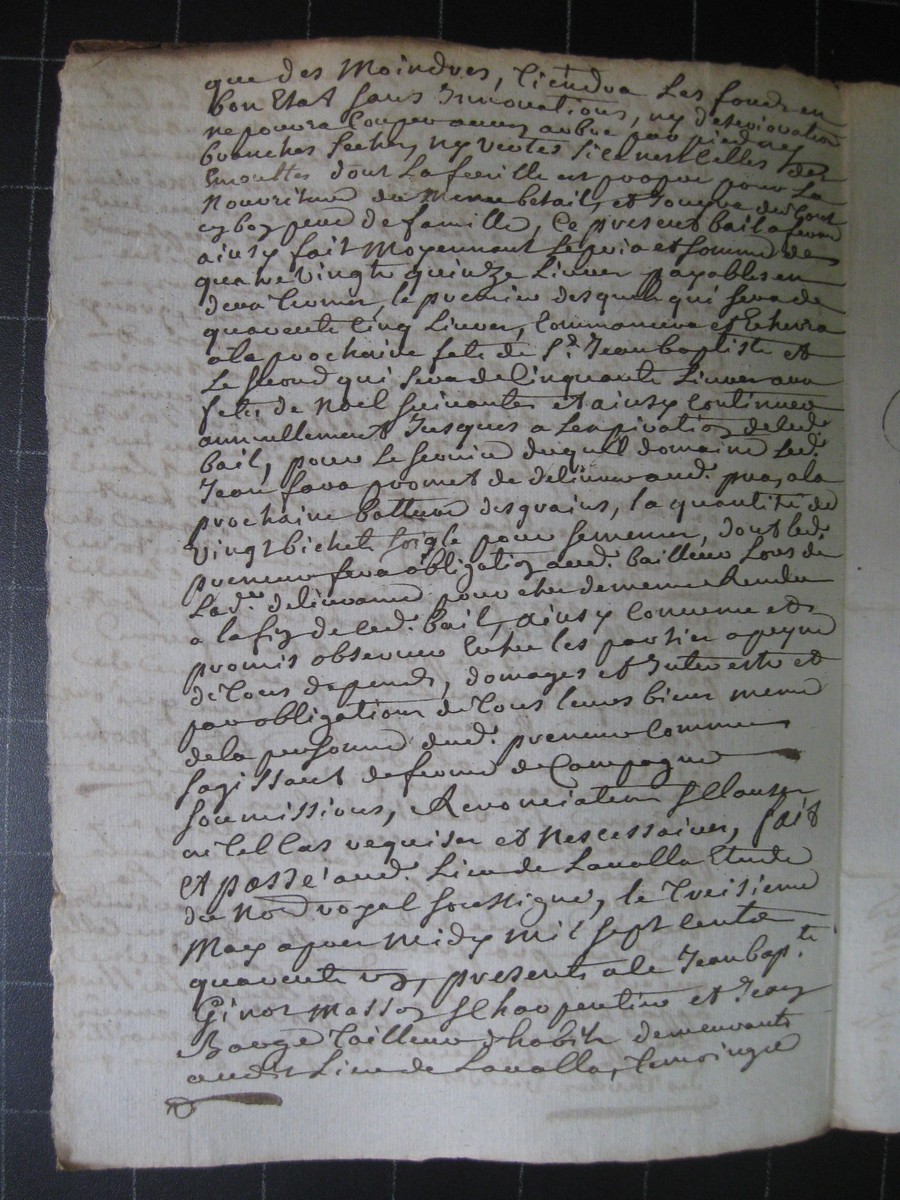 que des Moindres, tiendra Les fonds en
bon Etat sans Innovations, ny deteriorations
ne pourra Couper aucuns arbre par pied ny
branches seches, ny vertes si ce n'est Celles des
Emouttes dont La feuille est propre pour La
Nourriture du Menu betail, et Jouyra du tout
en bon pere de famille, Ce present bail a ferme
ainsy fait Moyennant Le prix et somme de
quatre vingts quinze Livres payables en
deux termes, le premier desquels qui sera de
quarente Cinq Livres, Commancera et Echerra
a la prochaine fete de St. Jean baptiste et
Le second qui sera de Cinquante Livres aux
fetes de Noel suivantes et ainsy Continuer
annuellement Jusques a Lexpiration de ced.
bail, pour Le service duquel domaine Led.
Jean fara promet de delivrer aud. a la
prochaine batture des grains, la quantité de
Vingt bichets soigle pour semence, dont led.
preneur fera obligation aud. bailleur Lors de
Lad. delivrance pour etre de meme Rendue
a la fin de ced. bail, ainsy Convenu et
promis observer Entre les parties a peyne
de tous depends, domages et Interests et
par obligations de tous leurs biens meme
de la personne dud. preneur Comme
sagissant de ferme de Campagne
soumissions, Renonciations & Clauses
a Celles requises et Nescessaires, fait
et passé aud. Lieu de Lavalla Etude
du Nore royal soussigné, le treisieme
May apres Midy Mil sept Cents
quarente un, presents a ce Jean bapte.
Ginot Masson & Charpentier et Jean
tailleur d'habits demeurants
audit Lieu de Lavalla, temoings